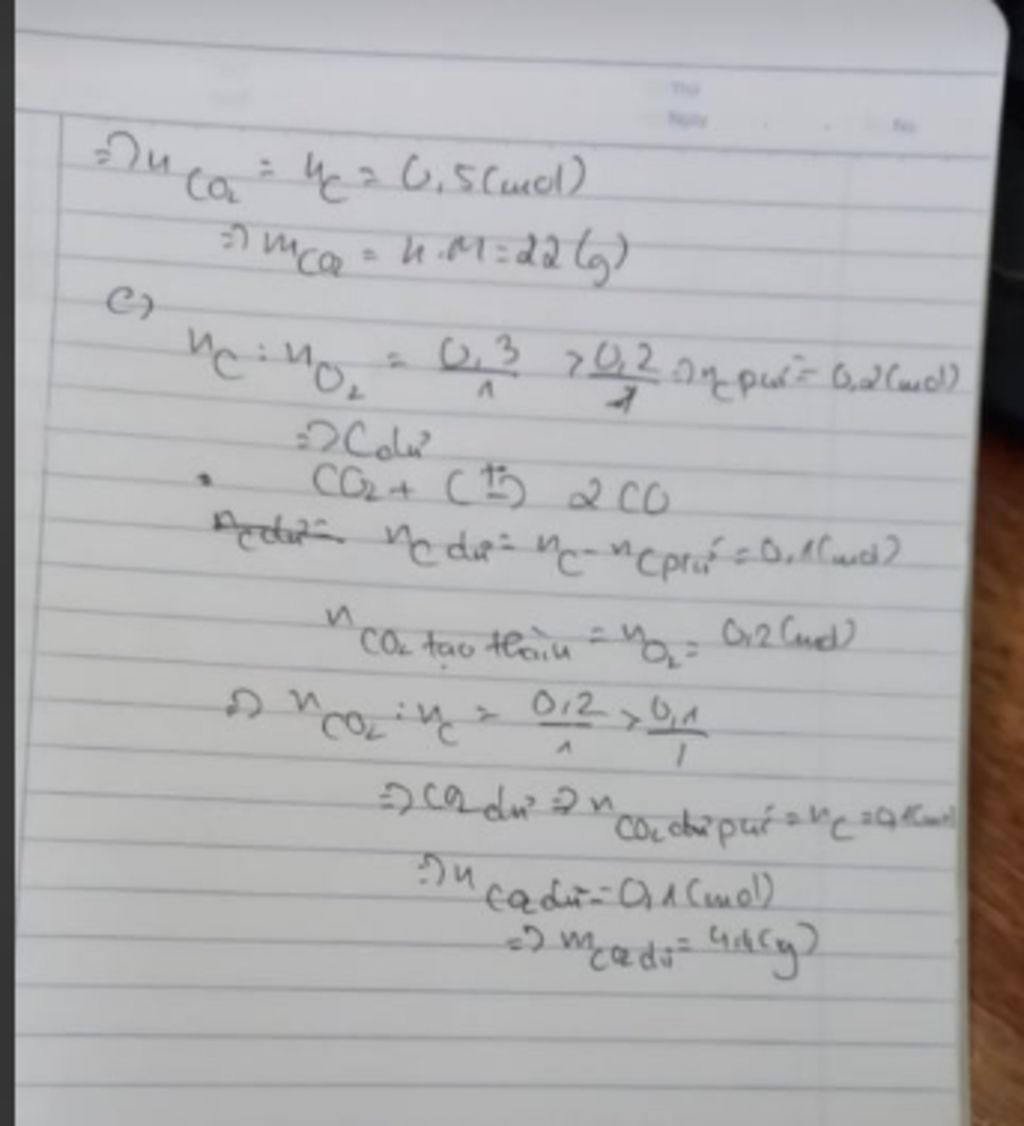 Thứ
Ngày No
=> n CO2 = nC = 0,5 (mol)
=> m CO2 = n.M = 22 (g)
c)
nC : nO2 = 0,3/1 > 0,2/1 => nC pứ = 0,2 (mol)
=> C dư
CO2 + C (t°→) 2CO
nC dư = nC dư = nC - nC pứ = 0,1 (mol)
n CO2 tạo thành = nO2 = 0,2 (mol)
=> nCO2 : nC = 0,2/1 > 0,1/1
=> CO2 dư => n CO2 dư pứ = nC = 0,1 (mol)
=> n CO2 dư = 0,1 (mol)
=> m CO2 dư = 4,4 (g)